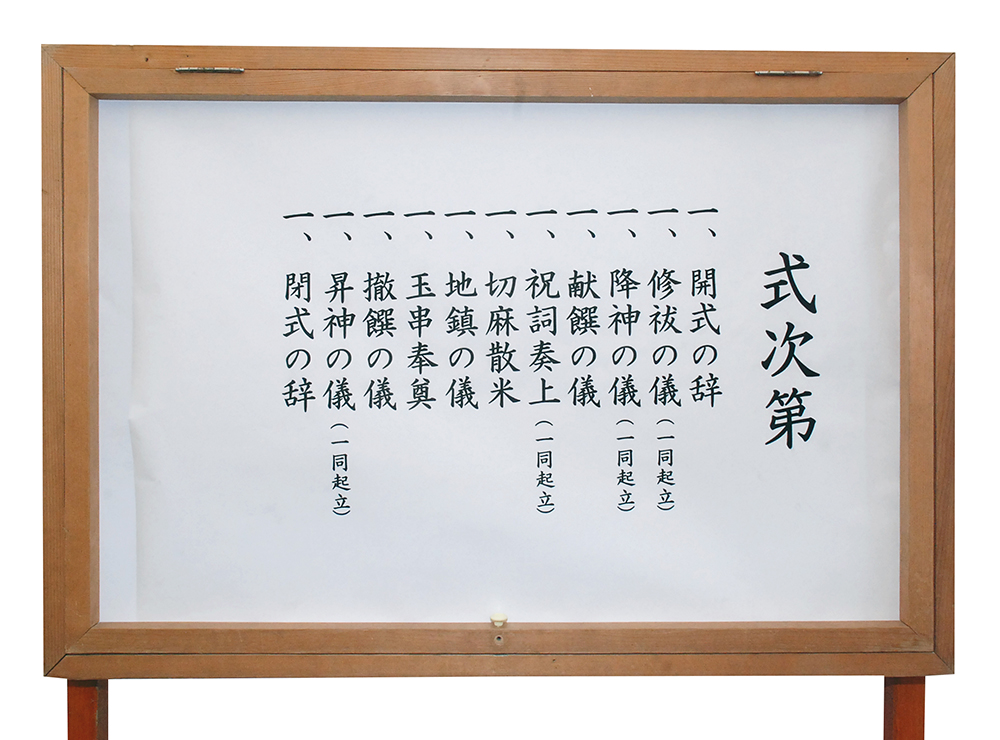 式次第
一、開式の辞
一、修祓の儀（一同起立）
一、降神の儀（一同起立）
一、献饌の儀
一、祝詞奏上（一同起立）
一、切麻散米
一、地鎮の儀
一、玉串奉奠
一、撤饌の儀
一、昇神の儀（一同起立）
一、閉式の辞